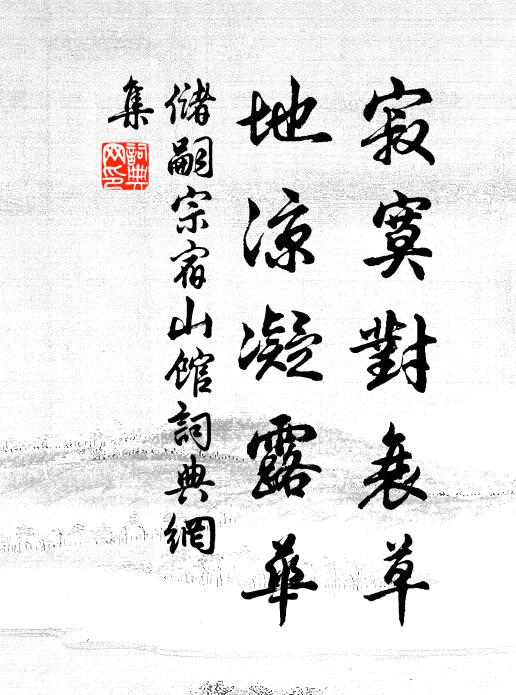 寂寞對衰草
地涼凝露華
儲嗣宗宿山館詞典網
集
詞典网印